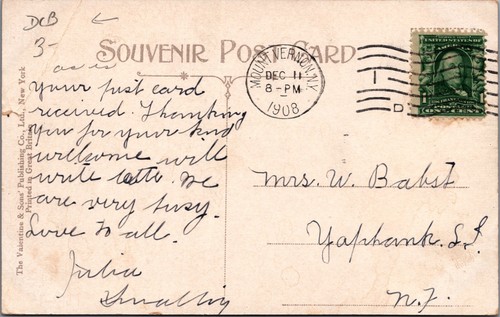 DCB ←
3-
as is
SOUVENIR POST CARD
your post card
received. Thanking
you for your kind
wellcome will
write later we
are very busy.
Love to all.
Julia
MOUNT VERNON, N.Y.
DEC 11
8-PM
1908
1
D
Mrs. W. Babst
Yaphank. L.I.
N.Y.
The Valentine & Sons' Publishing Co., Ltd., New York
Printed in Great Britain